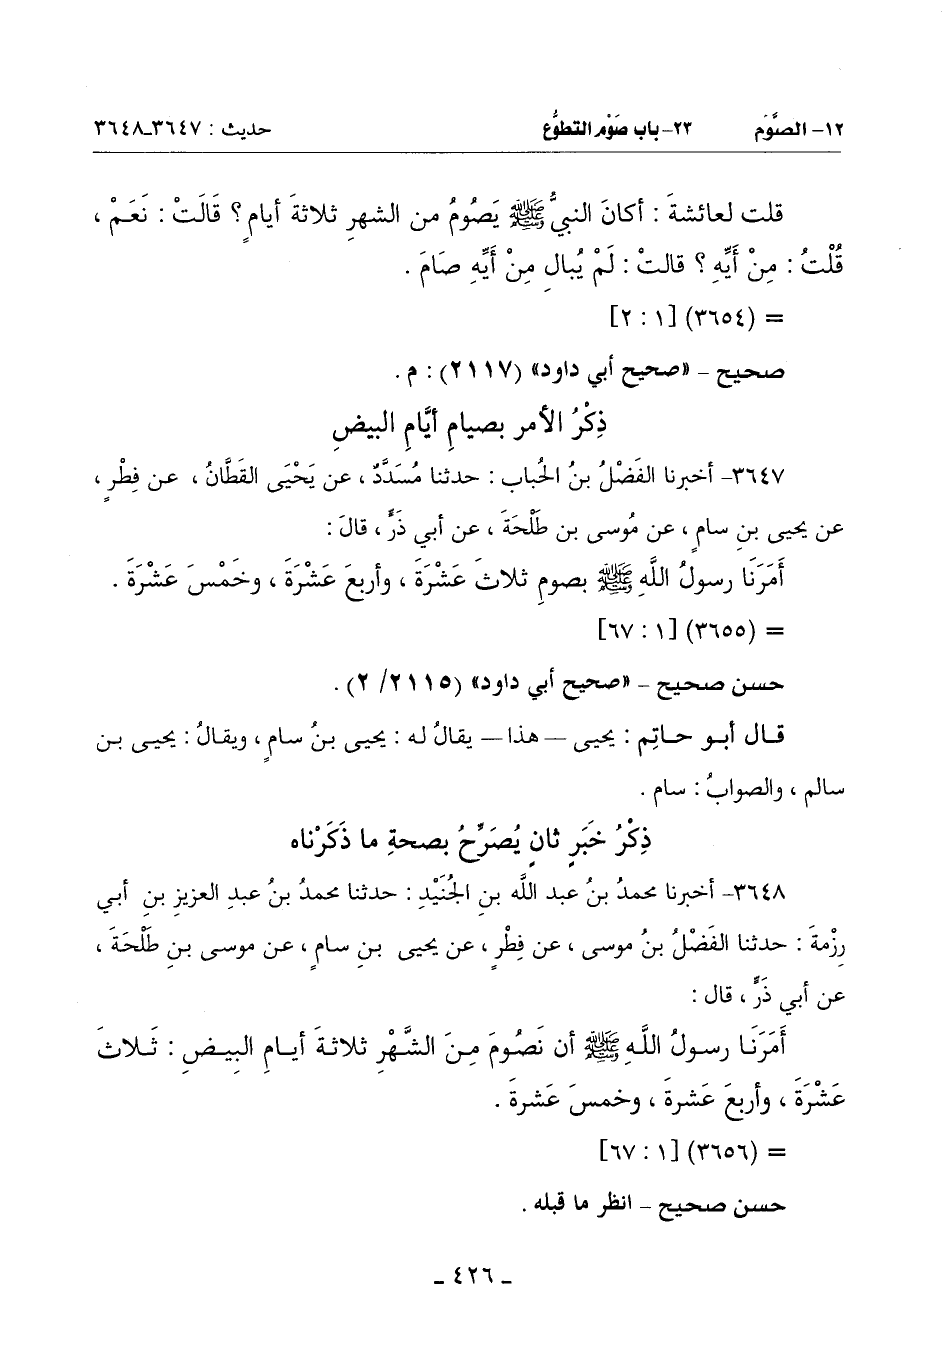 ١٢- الصَّوْم ٢٣- باب صَوْم التطوُّع حديث : ٣٦٤٧-٣٦٤٨
قلت لعائشةَ : أكانَ النبيُّ ﷺ يَصُومُ من الشهرِ ثلاثةَ أيامٍ ؟ قَالَتْ : نَعَمْ ،
قُلْتُ : مِنْ أَيِّهِ ؟ قالتْ : لَمْ يُبالِ مِنْ أَيِّهِ صَامَ .
= (٣٦٥٤) [١ : ٢]
صحيح - «صحيح أبي داود» (٢١١٧) : م .
ذِكْرُ الأمر بصيامِ أيَّامِ البيضِ
٣٦٤٧- أخبرنا الفَضْلُ بنُ الحُباب : حدثنا مُسَدَّدٌ ، عن يَحْيَى القَطَّانُ ، عن فِطْرٍ ،
عن يحيى بنِ سامٍ ، عن مُوسى بن طَلْحَةَ ، عن أبي ذَرٍّ ، قالَ :
أَمَرَنَا رسولُ اللَّهِ ﷺ بصومِ ثلاثَ عَشْرَةَ ، وأربعَ عَشْرَةَ ، وخَمْسَ عَشْرَةَ .
= (٣٦٥٥) [١ : ٦٧]
حسن صحيح - «صحيح أبي داود» (٢١١٥/ ٢) .
قال أبو حاتِم : يحيى — هذا — يقالُ له : يحيى بنُ سامٍ ، ويقالُ : يحيى بن
سالم ، والصوابُ : سام .
ذِكْرُ خَبَرٍ ثانٍ يُصَرِّحُ بصحةِ ما ذَكَرْناه
٣٦٤٨- أخبرنا محمدُ بنُ عبد اللَّه بنِ الجُنَيْدِ : حدثنا محمدُ بنُ عبدِ العزيزِ بنِ أبي
رِزْمةَ : حدثنا الفَضْلُ بنُ موسى ، عن فِطْرٍ ، عن يحيى بنِ سامٍ ، عن موسى بنِ طَلْحَةَ ،
عن أبي ذَرٍّ ، قال :
أَمَرَنَا رسولُ اللَّهِ ﷺ أن نَصُومَ مِنَ الشَّهْرِ ثلاثةَ أيامِ البيضِ : ثَلاثَ
عَشْرَةَ ، وأربعَ عَشرةَ ، وخمسَ عَشرةَ .
= (٣٦٥٦) [١ : ٦٧]
حسن صحيح - انظر ما قبله .
- ٤٢٦ -